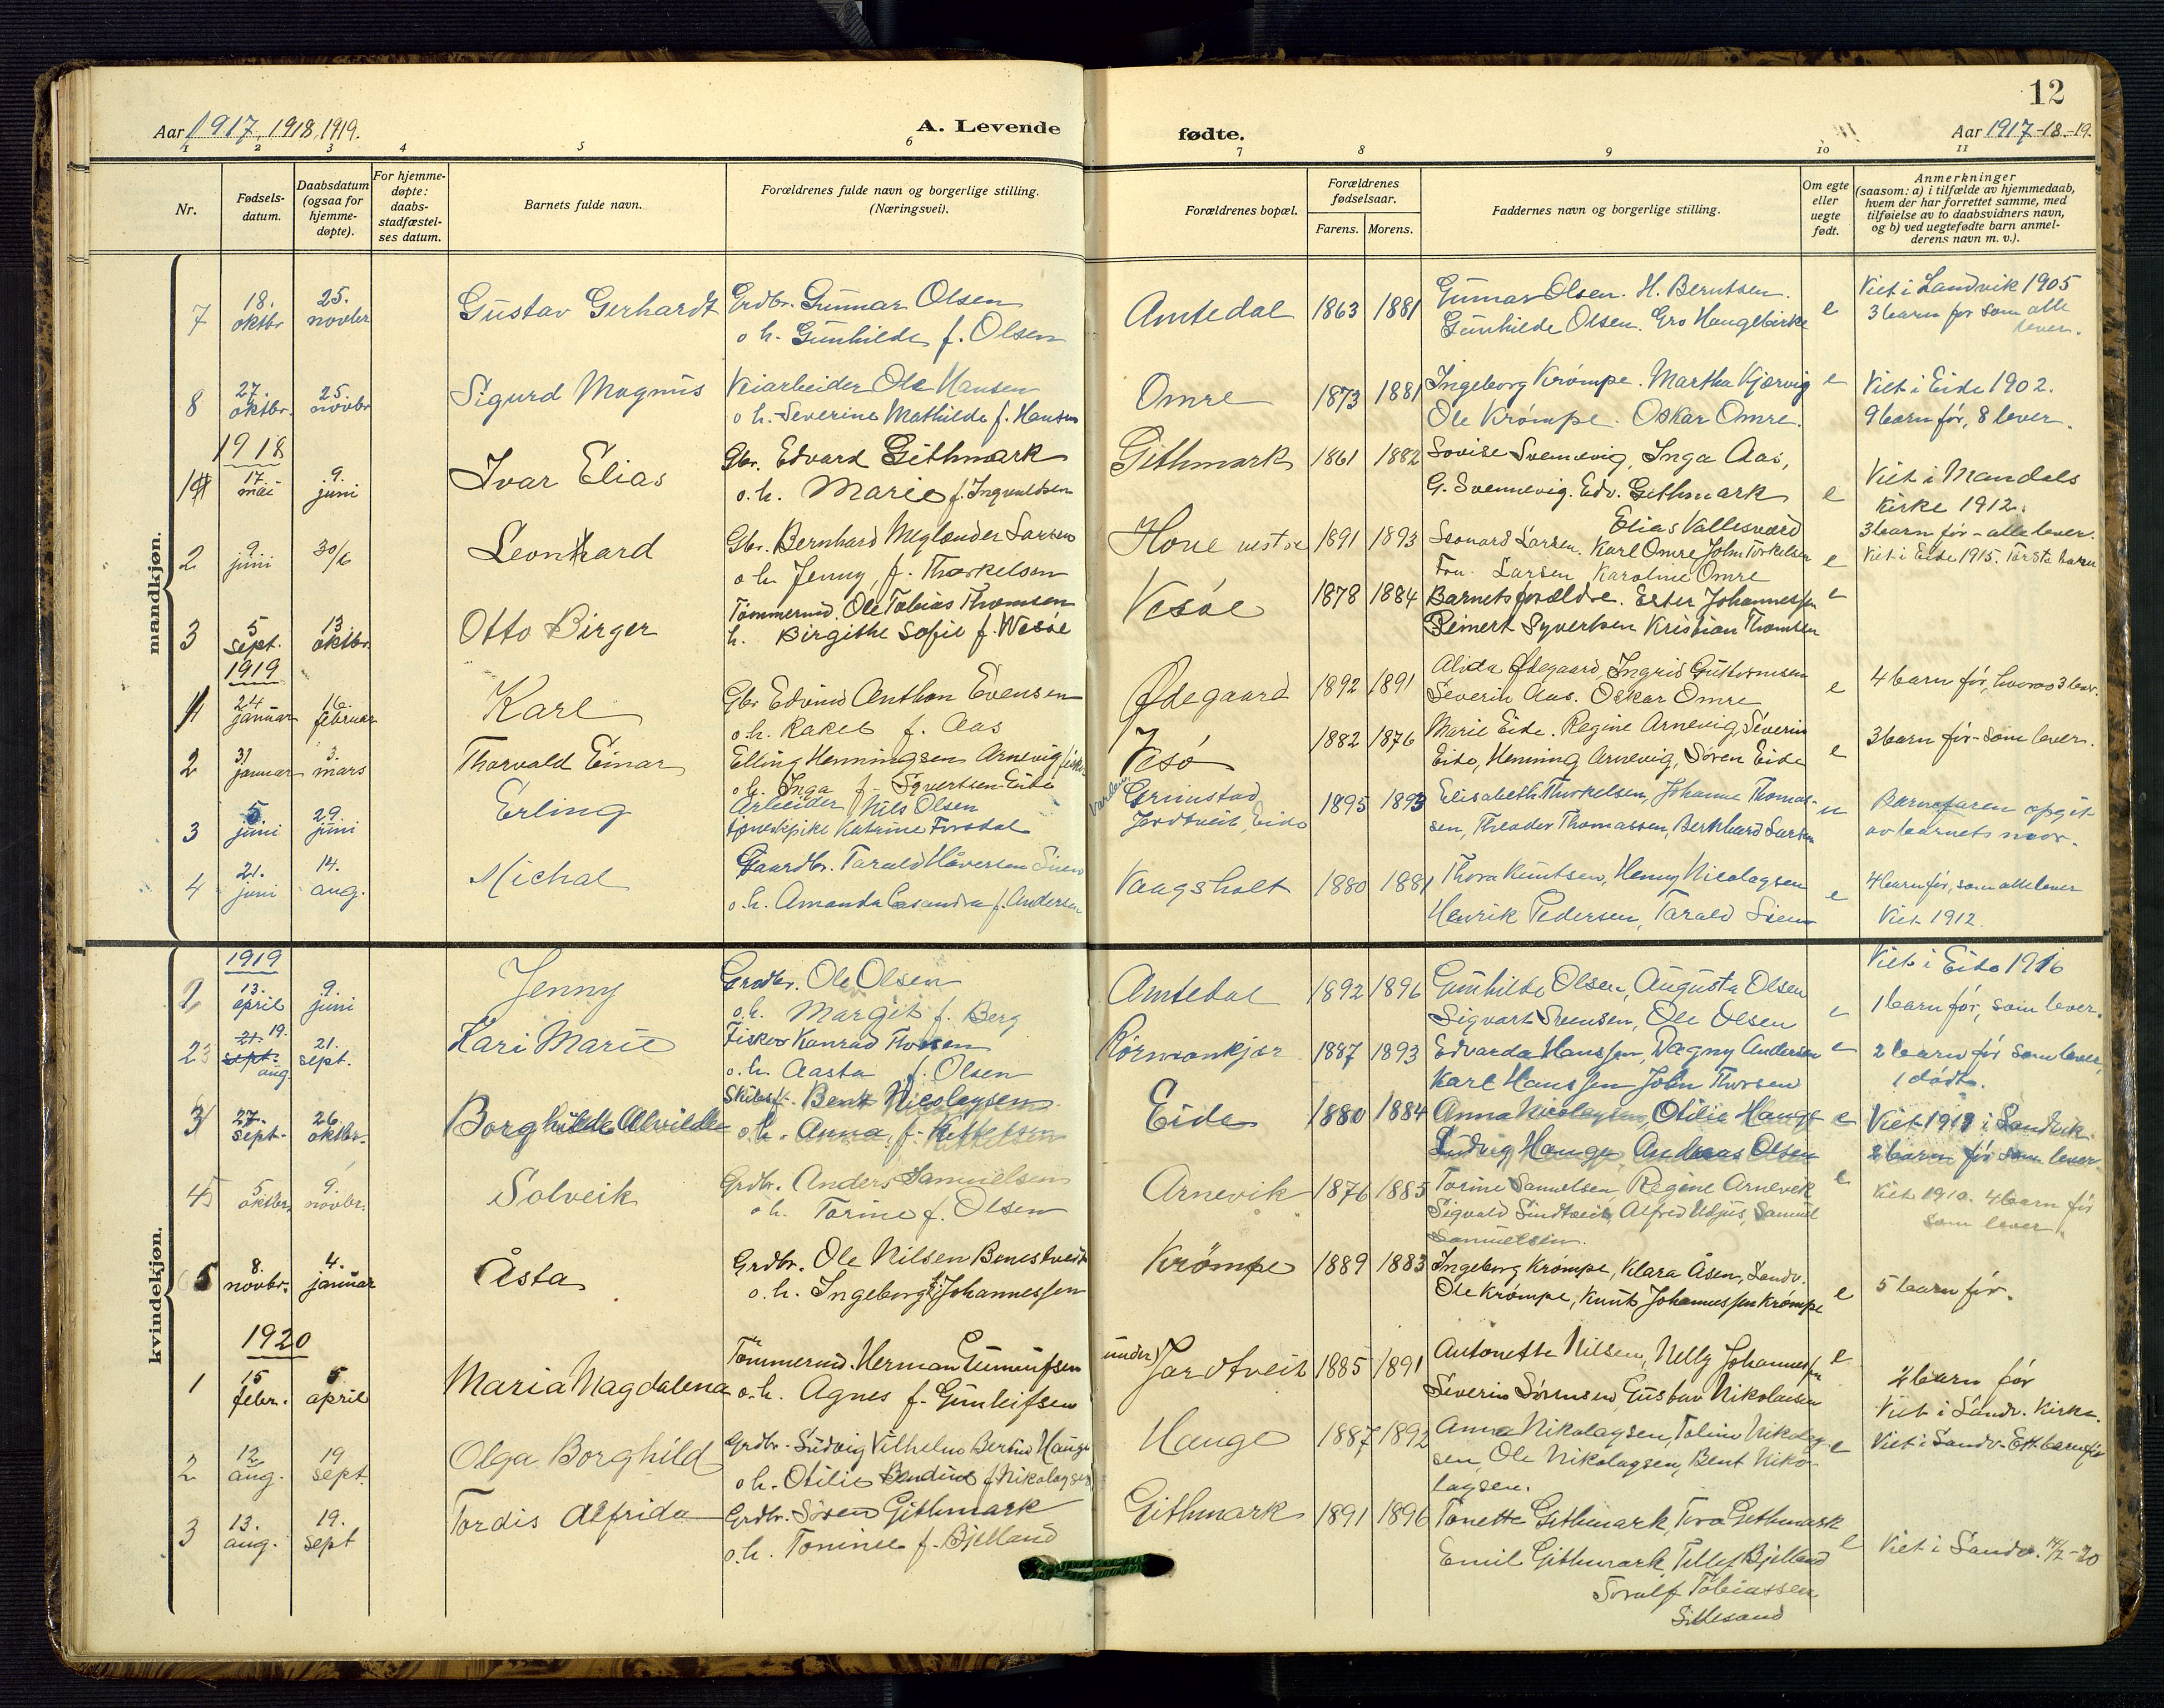 12
Aar 1917, 1918, 1919.
A. Levende fødte.
Aar 1917-18-19.
1 2 3 4 5 6 7 8 9 10 11
Nr.
Fødsels-
datum.
Daabsdatum
(ogsaa for
hjemme-
døpte).
For hjemme-
døpte:
daabs-
stadfæstel-
ses datum.
Barnets fulde navn.
Forældrenes fulde navn og borgerlige stilling.
(Næringsvei).
Forældrenes bopæl.
Forældrenes
fødselsaar.
Farens. Morens.
Faddernes navn og borgerlige stilling.
Om egte
eller
uegte
født.
Anmerkninger
(saasom: a) i tilfælde av hjemmedaab,
hvem der har forrettet samme, med
tilføielse av to daabsvidners navn,
og b) ved uegtefødte barn anmel-
derens navn m. v.).
mandkjøn.
7 18. oktbr 25. novber Gustav Gerhardt Grdbr. Gunnar Olsen
o h. Gunhilde f. Olsen
Amtedal 1863 1881 Gunnar Olsen. H. Berntsen.
Gunhilde Olsen. Gro Haugebirke e
Viet i Landvik 1905
3 barn før som alle
lever.
8 27. oktbr. 25. novbr Sigurd Magnus Veiarbeider Ole Hansen
o h. Severine Mathilde f. Hansen
Omre 1873 1881 Ingeborg Krømpe. Martha Kjørvig e
Ole Krømpe. Oskar Omre.
Viet i Eide 1902.
9 barn før, 8 lever.
1918
1 17. mai 9. juni Ivar Elias Gbr. Edvard Githmark
o. h. Marie f. Ingvaldsen
Githmark 1861 1882 Lovise Svennevig, Inga Aas,
G. Svennevig. Edv. Githmark e
Elias Vallesværd
Viet i Mandals
Kirke 1912.
3 barn før - alle lever.
2 9 juni 30/6 Leonhard Gbr. Bernhard Meglander Larsen
o h. Jenny, f. Thorkelsen
Hove vestre 1891 1893 Leonard Larsen. Karl Omre John Torkelsen
Fru Larsen Karoline Omre e
Viet i Eide 1915. Første barn
3 5 sept. 13. oktbr. Otto Birger Tømmermd. Ole Tobias Thomsen
h. Birgithe Sofie f. Vesøe
Vesøe 1878 1884 Barnets forældre. Ester Johannessen e
Reinert Syvertsen Kristian Thomsen
1919
1 24 januar 16. februar Karl Gbr Edvind Anthon Evensen
o. h. Rakel f. Aas
Ødegaard 1892 1891 Alida Ødegaard, Ingrid Guttormsen
Severin Aas. Oskar Omre e
4 barn før, hvorav 3 lever.
2 31 januar 3. mars Thorvald Einar Elling Henningsen Arnevig fisker
o h. Inga f. Syvertsen Eide
Vesø 1882 1876 Marie Eide. Regine Arnevig, Severin
Eide, Henning Arnevig, Søren Eide e
3 barn før - som lever.
3 5 juni 29. juni Erling Arbeider Nils Olsen
tjenestpike Katrine Forsdal
Grimstad
Jordtveit, Eide 1895 1893 Elisabeth Thorkelsen, Johanne Thomas-
sen, Theodor Thomassen, Bernhard Larsen u
Barnefaren opgit
av barnets mor.
4 21. juni 14. aug. Michal Gaardbr. Tarald Håversen
o. h. Amanda Casandra f. Andersen
Vaagsholt 1880 1881 Thora Knutsen, Henny Nicolaysen
Henrik Pedersen, Tarald e
4 barn før, som alle lever
Viet 1912.
kvindekjøn.
1919
13. april 9. juni Jenny Grdbr. Ole Olsen
o. h. Margit f. Berg
Amtedal 1892 1896 Gunhilde Olsen, Augusta Olsen
Sigvart Svensen, Ole Olsen e
Viet i Eide 1916
1 barn før, som lever.
2 21. sept. 19. aug 21. sept. Kari Marie Fisker Konrad Thorsen
o. h. Aasta f. Olsen
Rørmonkjær 1887 1893 Edvarda Hanssen, Dagny Andersen e
Karl Hanssen John Thorsen
2 barn før som lever,
1 dødt.
3 27. sept. 26 oktbr. Borghilde Alvilde Skibsf. Bent Nicolaysen
o h. Anna, f. Kittelsen
Eide 1880 1884 Anna Nicolaysen, Otilie Hauge e
Ludvig Hauge Andreas Olsen
Viet 1911 i Landvik
2 barn før som lever
4 5 oktbr. 9. novbr. Solveik Grdbr. Anders Samuelsen
o h. Torine f. Olsen
Arnevik 1876 1885 Torine Samuelsen, Regine Arnevik e
Sigvald Sindtveit, Alfred Udjus, Samuel
Samuelsen.
Viet 1910. 4 barn før
som lever.
5 8. novbr. 4. januar Åsta Grdbr. Ole Nilsen Bonestveit
o. h. Ingeborg f. Johannessen
Krømpe 1889 1883 Ingeborg Krømpe, Klara Åsen, Landv.
Ole Krømpe, Knut Johannessen Krømpe e
5 barn før.
1920
1 15 febr. 5 april Maria Magdalena Tømmermd. Herman Gunnufsen
o. h. Agnes f. Gunleifsen
under Jordtveit 1885 1891 Antonette Nilsen, Nelly Johannessen e
Severin Sørensen, Gustav Nikolaisen
2 barn før
Viet i Landv. Kirke.
2 12 aug. 19 sept. Olga Borghild Grdbr. Ludvig Vilhelm Bertin Hauge
o h. Otilie Bendine f Nikolaysen
Hauge 1887 1892 Anna Nikolaysen, Toline Nikolay-
sen, Ole Nikolaysen, Bent Niko-
laysen. e
Viet i Landv. Ett barn før
3 13. aug. 19. sept Tordis Alfrida Grdbr. Søren Githmark
o. h. Tominee f. Bjelland
Githmark 1891 1896 Tonette Githmark, Tora Githmark
Emil Githmark, Tellef Bjelland e
Torulf Tobiassen
Lillesand
Viet i Landv. 14/2-20